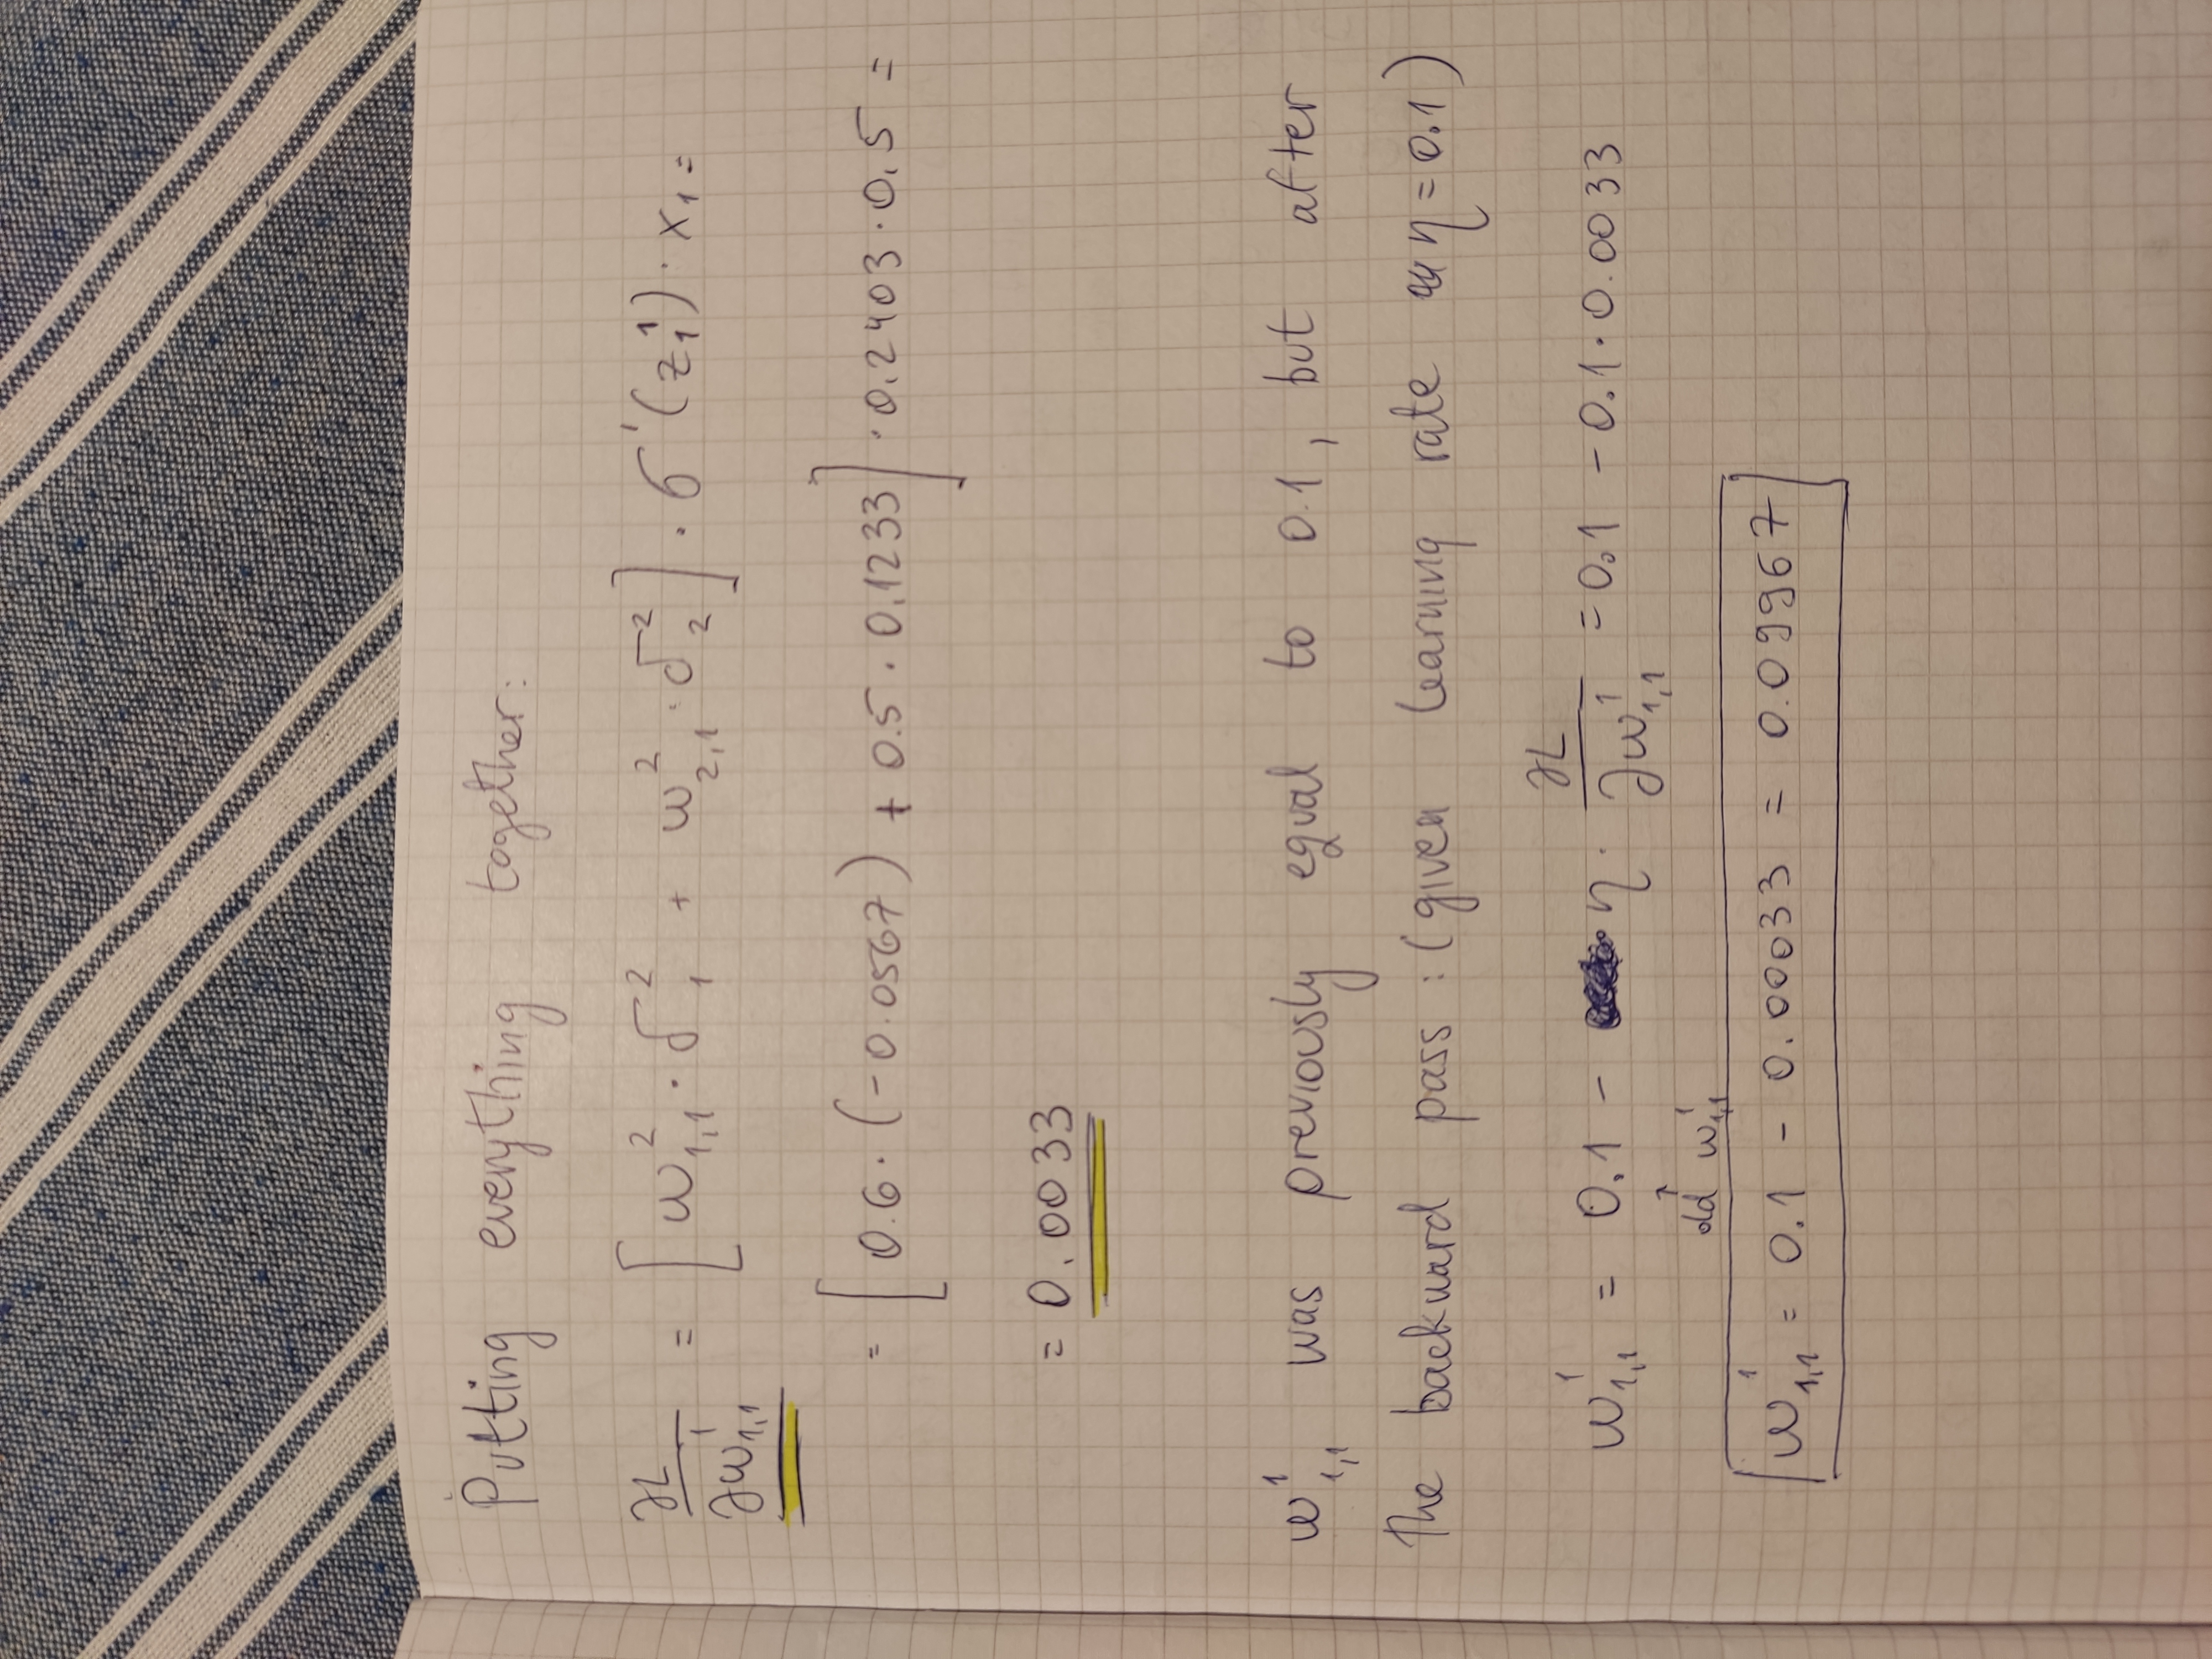 Putting everything together:
∂L/∂w¹₁,₁ = [w²₁,₁ · δ²₁ + w²₂,₁ · δ²₂] · σ'(z¹₁) · x₁ =
= [0.6 · (-0.0567) + 0.5 · 0.1233] · 0.2403 · 0.5 =
= 0.0033
w¹₁,₁ was previously equal to 0.1, but after
the backward pass: (given learning rate η = 0.1)
w¹₁,₁ = 0.1 - η · ∂L/∂w¹₁,₁ = 0.1 - 0.1 · 0.0033
↑
old w¹₁,₁
w¹₁,₁ = 0.1 - 0.00033 = 0.09967